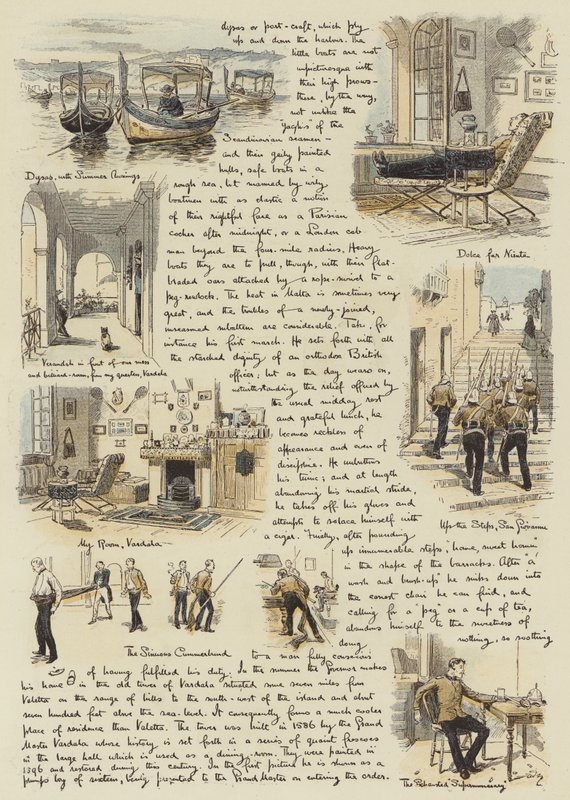 dysas or port-craft, which ply
up and down the harbour. The
little boats are not
unpicturesque with
their high prows —
there, by the way,
not unlike the
of the
Scandinavian seamen —
and their gaily painted
hulls, safe boats in a
rough sea, but manned by wily
boatmen with as elastic a notion
of their rightful fare as a Parisian
cocher after midnight, or a London cab-
man beyond the four-mile radius. Heavy
boats they are to pull, though, with their flat-
bladed oars attached by a rope-swivel to a
peg-rowlock. The heat in Malta is sometimes very
great, and the troubles of a newly-joined,
unseasoned subaltern are considerable. Take, for
instance his first march. He sets forth with all
the starched dignity of an orthodox British
officer; but as the day wears on,
notwithstanding the relief offered by
the usual midday rest
and grateful lunch, he
becomes reckless of
appearance and even of
discipline. He unbuttons
his tunic; and at length
abandoning his martial stride,
he takes off his gloves and
attempts to solace himself with
a cigar. Finally, after pounding
up innumerable steps, "home, sweet home"
in the shape of the barracks. After a
wash and brush-up he sinks down into
the easiest chair he can find, and
calling for a "peg" or a cup of tea,
abandons himself to the sweetness of
doing nothing, so soothing
to a man fully conscious
of having fulfilled his duty. In the summer the Governor makes
his home in the old tower of Vardala situated some seven miles from
Valetta on the range of hills to the south-west of the island and about
seven hundred feet above the sea-level. It consequently forms a much cooler
place of residence than Valetta. The tower was built in 1586 by the Grand
Master Vardala whose history is set forth in a series of quaint frescoes
in the large hall which is used as a dining-room. They were painted in
1396 and restored during this century. In the first picture he is shown as a
page of sixteen, being presented to the Grand Master on entering the order.
Dysas, with Summer Awnings
Dolce far Niente
Verandah in front of our mess
and billiard-room, from my quarters, Vardala
Up the Steps, San Giovanni
My Room, Vardala
The Sinuous Cummerbund
The Exhausted Supernumerary